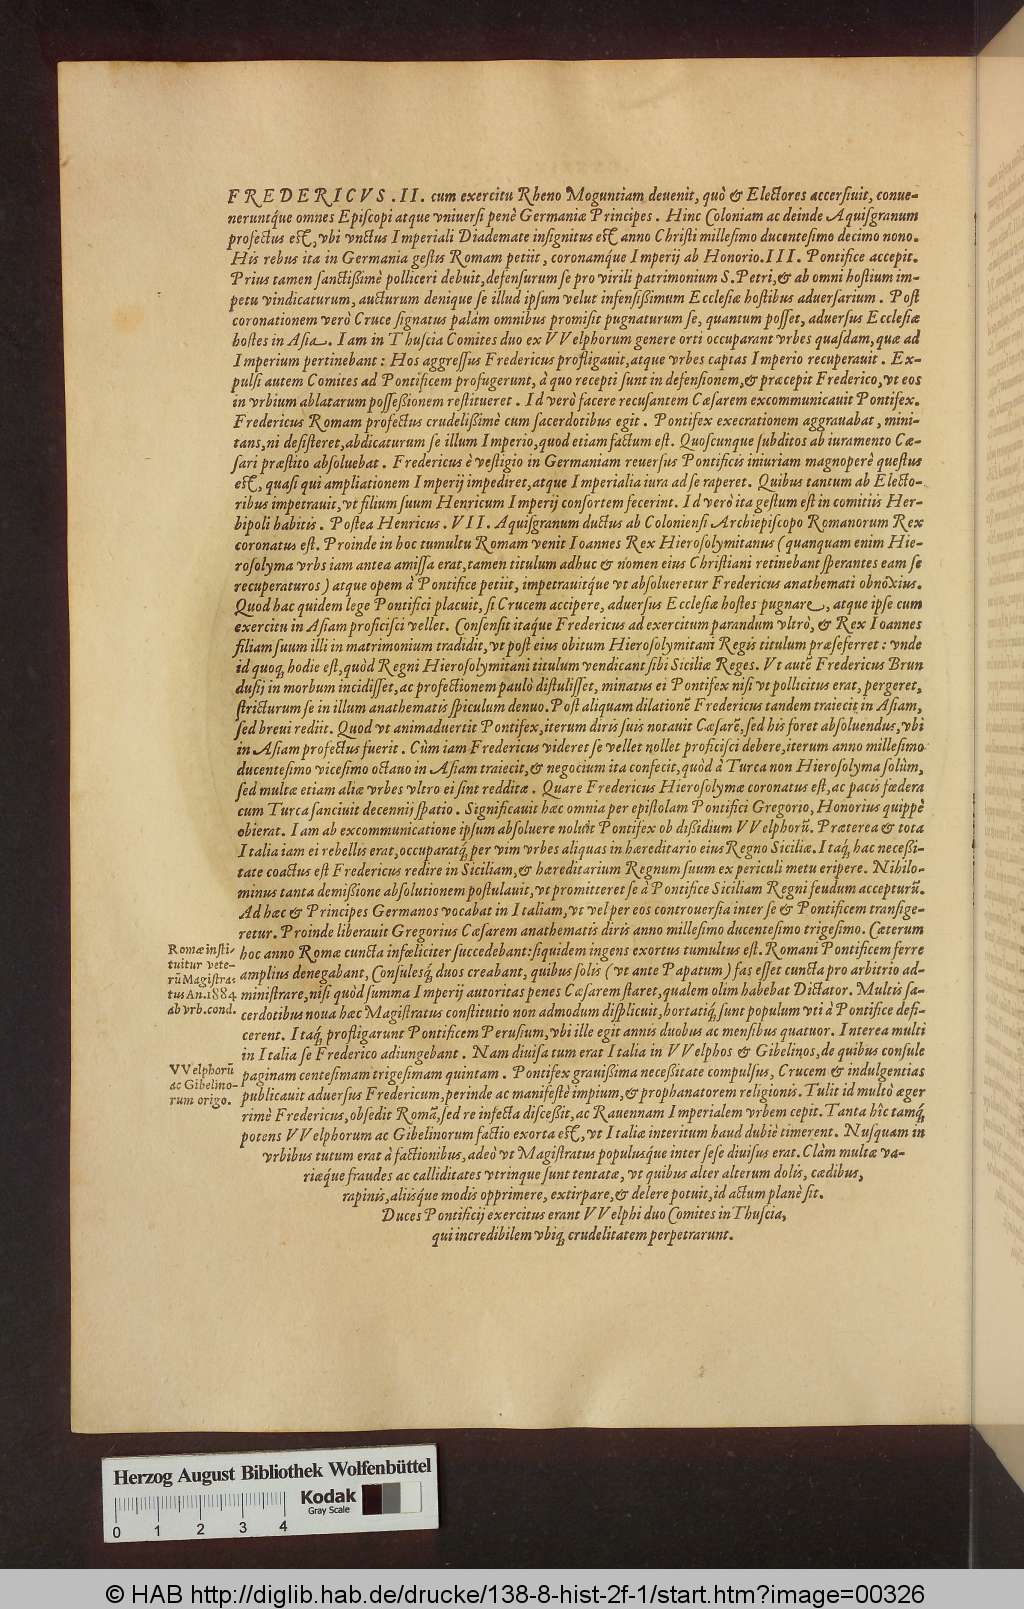 FREDERICVS.II. cum exercitu Rheno Moguntiam deuenit, quò & Electores accersiuit, conue-
neruntq́ue omnes Episcopi atque vniuersi penè Germaniæ Principes. Hinc Coloniam ac deinde Aquisgranum
profectus est, vbi vnctus Imperiali Diademate insignitus est anno Christi millesimo ducentesimo decimo nono.
His rebus ita in Germania gestis Romam petiit, coronamq́ue Imperij ab Honorio.III. Pontifice accepit.
Prius tamen sanctißimè polliceri debuit, defensurum se pro virili patrimonium S.Petri, & ab omni hostium im-
petu vindicaturum, aucturum denique se illud ipsum velut infensißimum Ecclesiæ hostibus aduersarium. Post
coronationem verò Cruce signatus palàm omnibus promisit pugnaturum se, quantum posset, aduersus Ecclesiæ
hostes in Asia. Iam in Thuscia Comites duo ex VVelphorum genere orti occuparant vrbes quasdam, quæ ad
Imperium pertinebant: Hos aggressus Fredericus profligauit, atque vrbes captas Imperio recuperauit. Ex-
pulsi autem Comites ad Pontificem profugerunt, à quo recepti sunt in defensionem, & præcepit Frederico, vt eos
in vrbium ablatarum posseßionem restitueret. Id verò facere recusantem Cæsarem excommunicauit Pontifex.
Fredericus Romam profectus crudelißimè cum sacerdotibus egit. Pontifex execrationem aggrauabat, mini-
tans, ni desisteret, abdicaturum se illum Imperio, quod etiam factum est. Quoscunque subditos ab iuramento Cæ-
sari præstito absoluebat. Fredericus è vestigio in Germaniam reuersus Pontificis iniuriam magnoperè questus
est, quasi qui ampliationem Imperij impediret, atque Imperialia iura ad se raperet. Quibus tantum ab Electo-
ribus impetrauit, vt filium suum Henricum Imperij consortem fecerint. Id verò ita gestum est in comitiis Her-
bipoli habitis. Postea Henricus.VII. Aquisgranum ductus ab Coloniensi Archiepiscopo Romanorum Rex
coronatus est. Proinde in hoc tumultu Romam venit Ioannes Rex Hierosolymitanus (quanquam enim Hie-
rosolyma vrbs iam antea amissa erat, tamen titulum adhuc & nomen eius Christiani retinebant sperantes eam se
recuperaturos) atque opem à Pontifice petiit, impetrauitq́ue vt absolueretur Fredericus anathemati obnoxius.
Quod hac quidem lege Pontifici placuit, si Crucem accipere, aduersus Ecclesiæ hostes pugnare, atque ipse cum
exercitu in Asiam proficisci vellet. Consensit itaq́ue Fredericus ad exercitum parandum vltrò, & Rex Ioannes
filiam suum illi in matrimonium tradidit, vt post eius obitum Hierosolymitani Regis titulum præseferret: vnde
id quoq; hodie est, quòd Regni Hierosolymitani titulum vendicant sibi Siciliæ Reges. Vt autē Fredericus Brun
dusij in morbum incidisset, ac profectionem paulò distulisset, minatus ei Pontifex nisi vt pollicitus erat, pergeret,
stricturum se in illum anathematis spiculum denuo. Post aliquam dilationē Fredericus tandem traiecit in Asiam,
sed breui rediit. Quod vt animaduertit Pontifex, iterum diris suis notauit Cæsarē, sed his foret absoluendus, vbi
in Asiam profectus fuerit. Cùm iam Fredericus videret se vellet nollet proficisci debere, iterum anno millesimo
ducentesimo vicesimo octauo in Asiam traiecit, & negocium ita confecit, quòd à Turca non Hierosolyma solùm,
sed multæ etiam aliæ vrbes vltro ei sint redditæ. Quare Fredericus Hierosolymæ coronatus est, ac pacis fœdera
cum Turca sanciuit decennij spatio. Significauit hæc omnia per epistolam Pontifici Gregorio, Honorius quippè
obierat. Iam ab excommunicatione ipsum absoluere noluit Pontifex ob dißidium VVelphorū. Præterea & tota
Italia iam ei rebellis erat, occuparatq́; per vim vrbes aliquas in hæreditario eius Regno Siciliæ. Itaq́; hac neceßi-
tate coactus est Fredericus redire in Siciliam, & hæreditarium Regnum suum ex periculi metu eripere. Nihilo-
minus tanta demißione absolutionem postulauit, vt promitteret se à Pontifice Siciliam Regni feudum accepturū.
Ad hæc & Principes Germanos vocabat in Italiam, vt vel per eos controuersia inter se & Pontificem transige-
retur. Proinde liberauit Gregorius Cæsarem anathematis diris anno millesimo ducentesimo trigesimo. Cæterum
hoc anno Romæ cuncta infœliciter succedebant: siquidem ingens exortus tumultus est. Romani Pontificem ferre
amplius denegabant, Consulesq́; duos creabant, quibus solis (vt ante Papatum) fas esset cuncta pro arbitrio ad-
ministrare, nisi quòd summa Imperij autoritas penes Cæsarem staret, qualem olim habebat Dictator. Multis sa-
cerdotibus noua hæc Magistratus constitutio non admodum displicuit, hortatiq́; sunt populum vti à Pontifice defi-
cerent. Itaq́; profligarunt Pontificem Perusium, vbi ille egit annis duobus ac mensibus quatuor. Interea multi
in Italia se Frederico adiungebant. Nam diuisa tum erat Italia in VVelphos & Gibelinos, de quibus consule
paginam centesimam trigesimam quintam. Pontifex grauißima neceßitate compulsus, Crucem & indulgentias
publicauit aduersus Fredericum, perinde ac manifestè impium, & prophanatorem religionis. Tulit id multò æger
rimè Fredericus, obsedit Romā, sed re infecta disceßit, ac Rauennam Imperialem vrbem cepit. Tanta hîc tamq́;
potens VVelphorum ac Gibelinorum factio exorta est, vt Italiæ interitum haud dubiè timerent. Nusquam in
vrbibus tutum erat à factionibus, adeò vt Magistratus populusque inter sese diuisus erat. Clàm multæ va-
riæque fraudes ac calliditates vtrinque sunt tentatæ, vt quibus alter alterum dolis, cædibus,
rapinis, aliisq́ue modis opprimere, extirpare, & delere potuit, id actum planè sit.
Duces Pontificij exercitus erant VVelphi duo Comites in Thuscia,
qui incredibilem vbiq; crudelitatem perpetrarunt.
Romæ insti-
tuitur vete-
rū Magistra-
tus An.1884
ab vrb.cond.
VVelphorū
ac Gibelino-
rum origo.
Herzog August Bibliothek Wolfenbüttel
Kodak
Gray Scale
0 1 2 3 4
© HAB http://diglib.hab.de/drucke/138-8-hist-2f-1/start.htm?image=00326